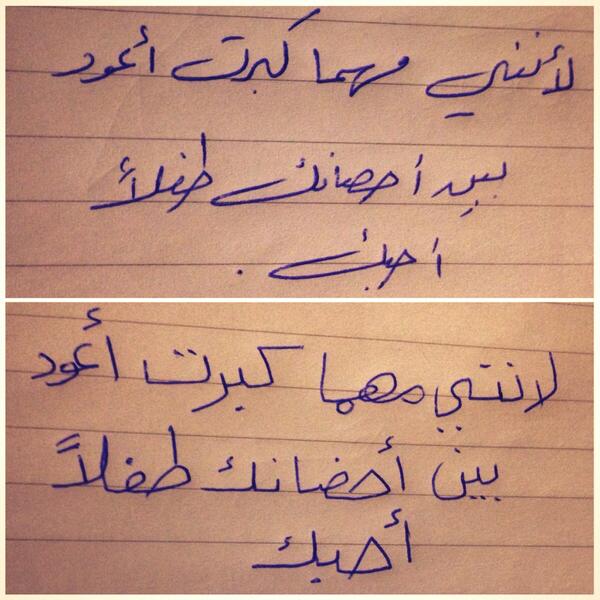 لأنني مهما كبرت أعود
بين أحضانك طفلاً
احبك .
لانني مهما كبرت أعود
بين أحضانك طفلاً
أحبك